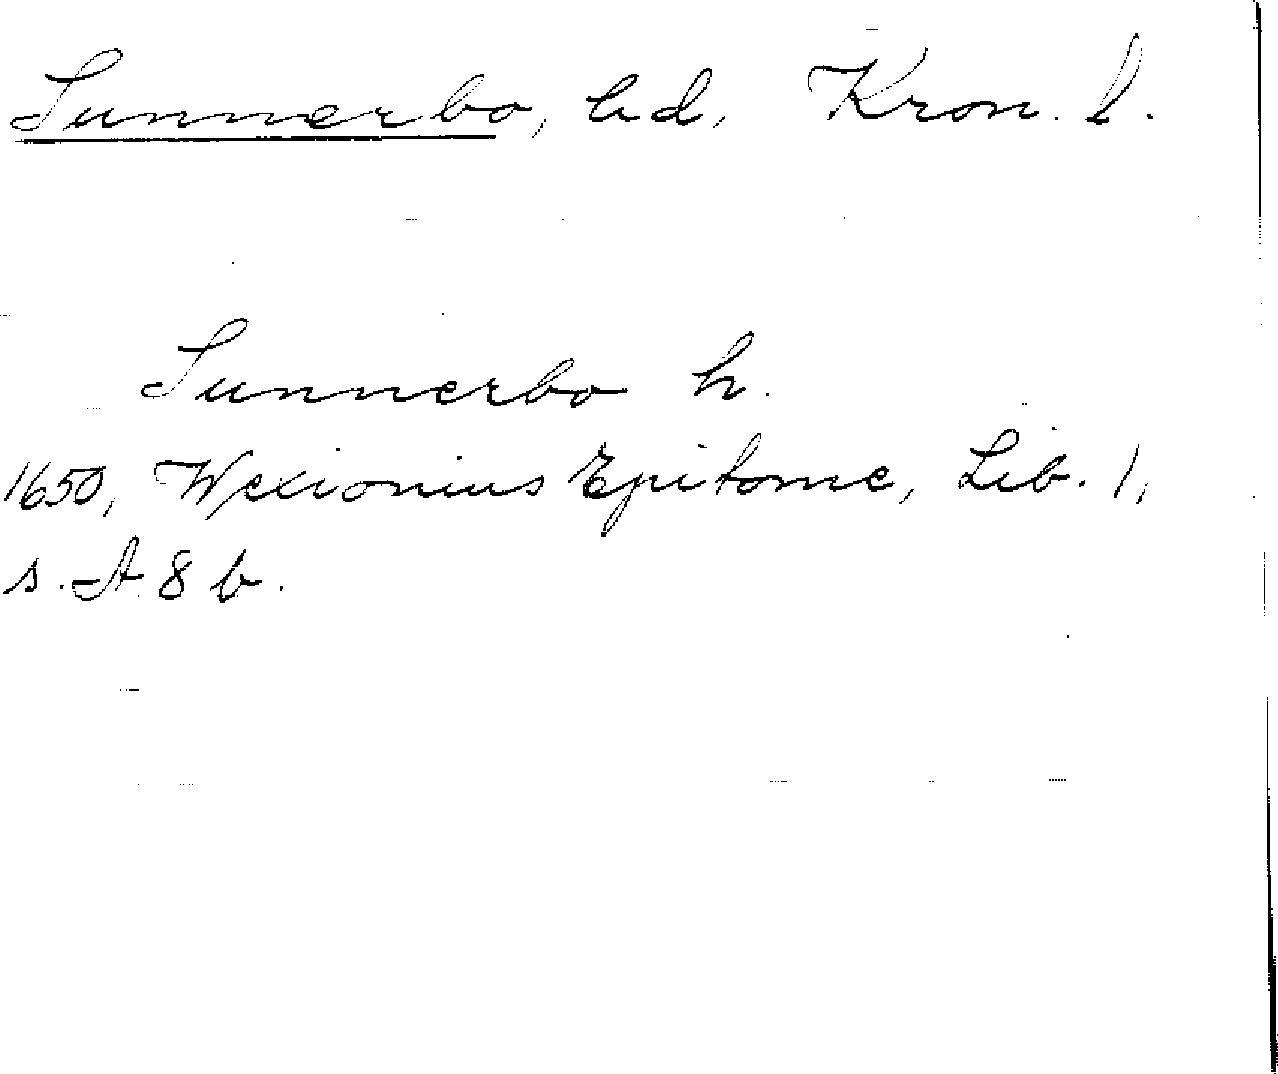 Sunnerbo, hd, Kron. l.
Sunnerbo h.
1650, Wexionius Epitome, Lib. 1,
s. A 8 b.